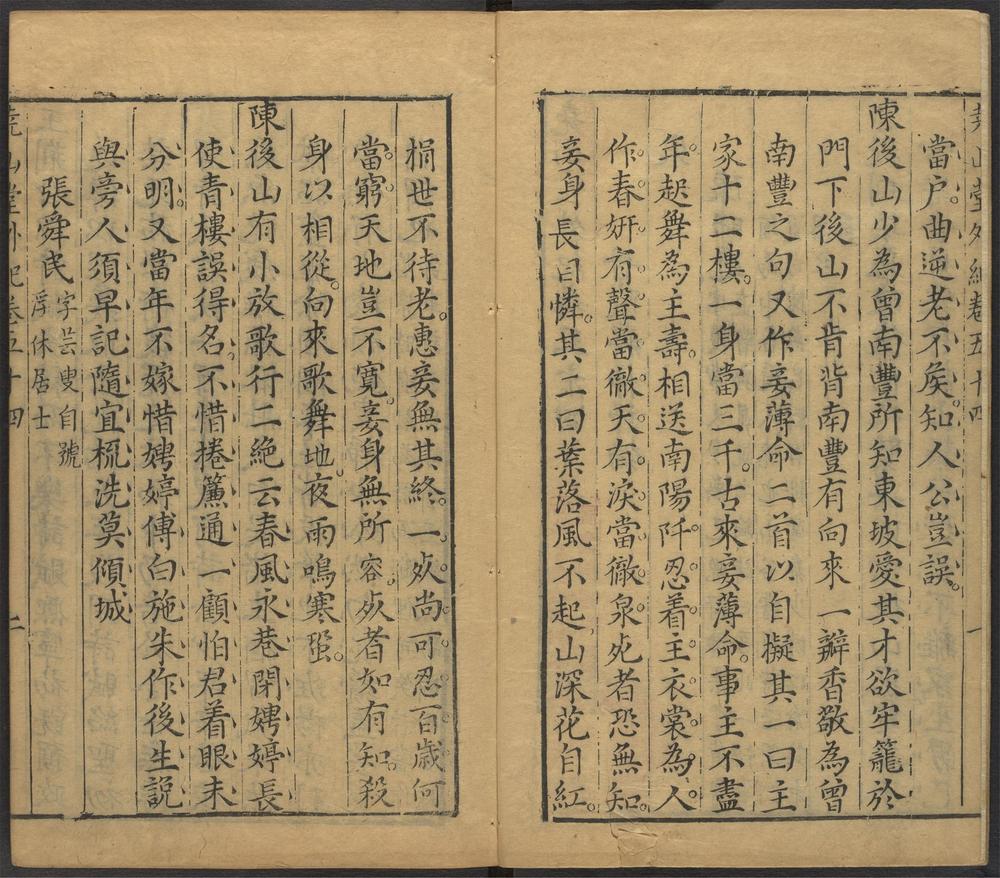 堯山堂外紀卷五十四 一
當户曲逆老不矦知人公豈誤
陳後山少為曾南豐所知東坡愛其才欲牢籠於
門下後山不肯背南豐有向來一瓣香敬為曾
南豐之句又作妾薄命二首以自擬其一曰主
家十二樓一身當三千古來妾薄命事主不盡
年起舞為主壽相送南陽阡忍着主衣裳為人
作春妍有聲當徹天有淚當徹泉死者恐無知
妾身長自憐其二曰葉落風不起山深花自紅
捐世不待老惠妾無其終一死尚可忍百歲何
當窮天地豈不寬妾身無所容死者如有知殺
身以相從向來歌舞地夜雨鳴寒蛩
陳後山有小放歌行二絕云春風永巷閉娉婷長
使青樓誤得名不惜捲簾通一顧怕君着眼未
分明又當年不嫁惜娉婷傅白施朱作後生說
與旁人須早記隨宜梳洗莫傾城
張舜民字芸叟自號
浮休居士
堯山堂外紀卷五十四 二